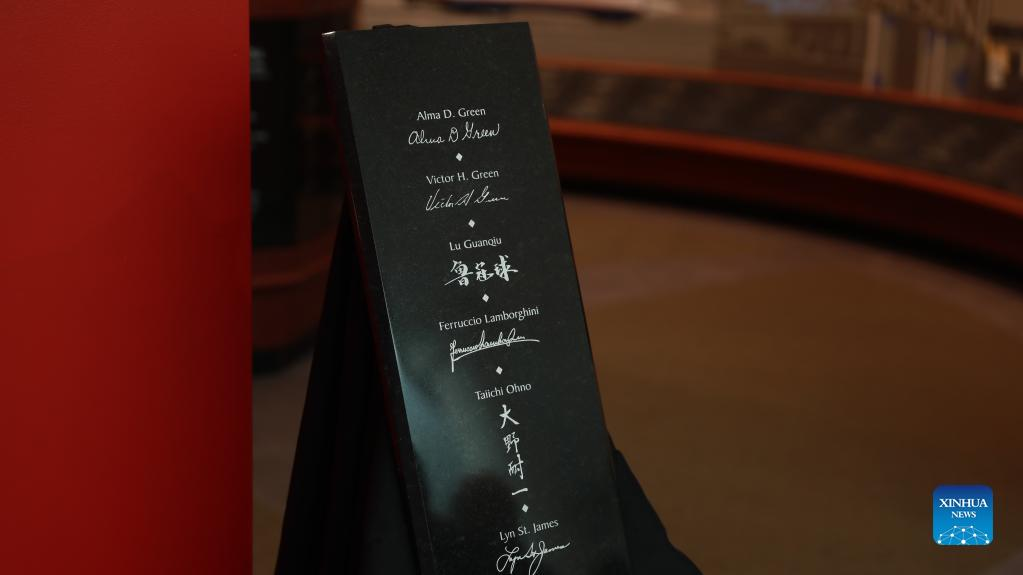 Alma D. Green
Alma D Green
Victor H. Green
Victor H Green
Lu Guanqiu
鲁冠球
Ferruccio Lamborghini
Ferruccio Lamborghini
Taiichi Ohno
大
野
耐
一
Lyn St. James
Lyn St. James
XINHUA
NEWS